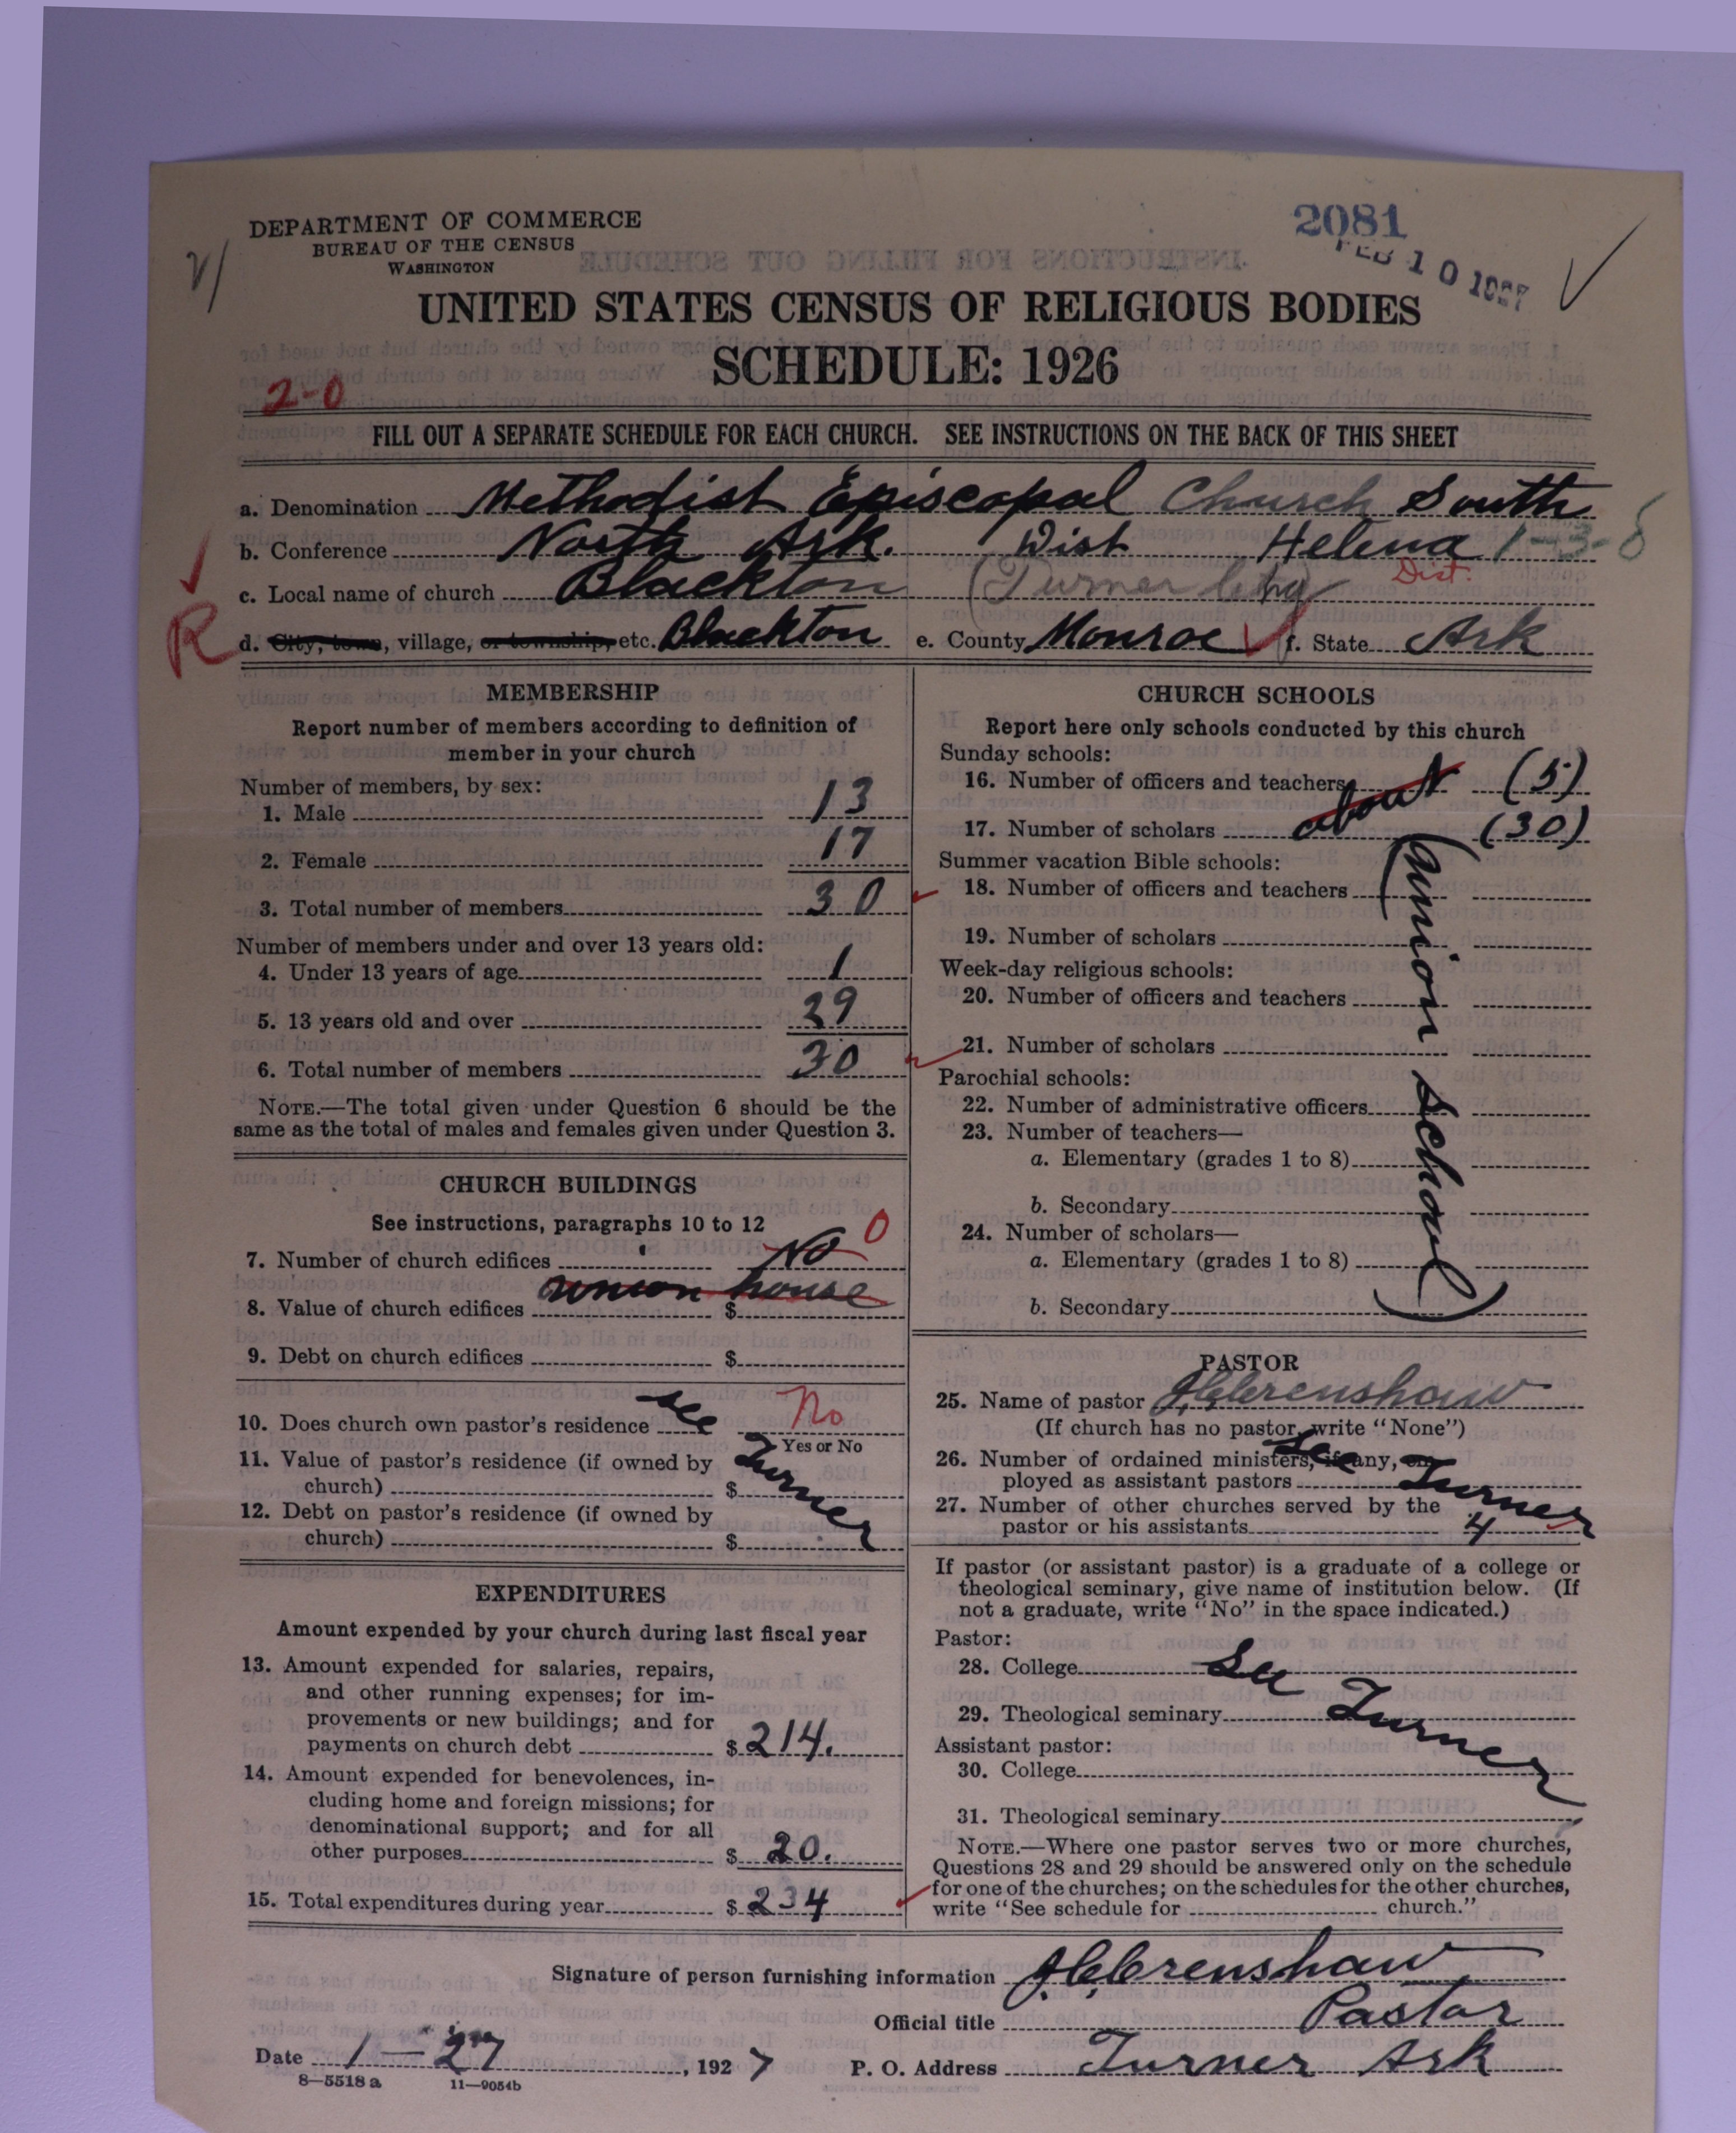 DEPARTMENT OF COMMERCE
BUREAU OF THE CENSUS
WASHINGTON
2081
FEB 10 1927
UNITED STATES CENSUS OF RELIGIOUS BODIES
SCHEDULE: 1926
2-0
FILL OUT A SEPARATE SCHEDULE FOR EACH CHURCH. SEE INSTRUCTIONS ON THE BACK OF THIS SHEET
a. Denomination Methodist Episcopal Church South
b. Conference North Ark. Dist Helena 1-3-8
Dist.
c. Local name of church Blackton (Turner
R
d. City, town, village, or township, etc. Blackton e. County Monroe f. State Ark
MEMBERSHIP
Report number of members according to definition of
member in your church
Number of members, by sex:
1. Male 13
2. Female 17
3. Total number of members 30
Number of members under and over 13 years old:
4. Under 13 years of age 1
5. 13 years old and over 29
6. Total number of members 30
NOTE.—The total given under Question 6 should be the
same as the total of males and females given under Question 3.
CHURCH BUILDINGS
See instructions, paragraphs 10 to 12
7. Number of church edifices No 0
union house
8. Value of church edifices $
9. Debt on church edifices $
10. Does church own pastor's residence see No
Yes or No
11. Value of pastor's residence (if owned by
church) $ Turner
12. Debt on pastor's residence (if owned by
church) $
EXPENDITURES
Amount expended by your church during last fiscal year
13. Amount expended for salaries, repairs,
and other running expenses; for im-
provements or new buildings; and for
payments on church debt $ 214.
14. Amount expended for benevolences, in-
cluding home and foreign missions; for
denominational support; and for all
other purposes $ 20.
15. Total expenditures during year $ 234
CHURCH SCHOOLS
Report here only schools conducted by this church
Sunday schools:
16. Number of officers and teachers (5)
about
17. Number of scholars (30)
Summer vacation Bible schools:
18. Number of officers and teachers
19. Number of scholars
Week-day religious schools:
20. Number of officers and teachers
21. Number of scholars
Parochial schools:
22. Number of administrative officers
23. Number of teachers—
a. Elementary (grades 1 to 8)
b. Secondary
24. Number of scholars—
a. Elementary (grades 1 to 8)
b. Secondary
(union school)
PASTOR
25. Name of pastor J.C. Crenshaw
(If church has no pastor, write "None")
26. Number of ordained ministers, if any, em-
ployed as assistant pastors
See Turner
27. Number of other churches served by the
pastor or his assistants 4
If pastor (or assistant pastor) is a graduate of a college or
theological seminary, give name of institution below. (If
not a graduate, write "No" in the space indicated.)
Pastor:
28. College See
29. Theological seminary Turner
Assistant pastor:
30. College
31. Theological seminary
NOTE.—Where one pastor serves two or more churches,
Questions 28 and 29 should be answered only on the schedule
for one of the churches; on the schedules for the other churches,
write "See schedule for church."
Signature of person furnishing information J.C. Crenshaw
Official title Pastor
Date 1-27, 1927 P. O. Address Turner Ark
8—5518 a 11—9054b